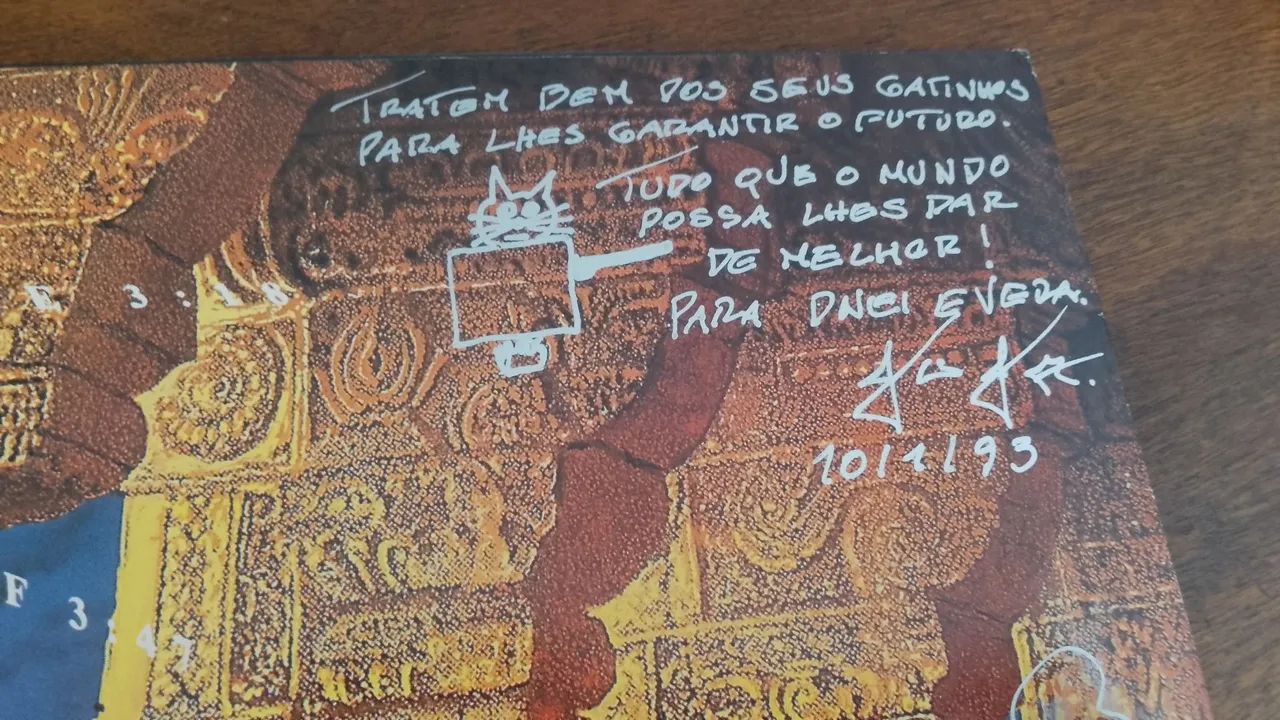 TRATEM BEM DOS SEUS GATINHOS
PARA LHES GARANTIR O FUTURO.
TUDO QUE O MUNDO
POSSA LHES DAR
DE MELHOR!
PARA DNEI E VERA.
10/1/93
3:18
F 3:47